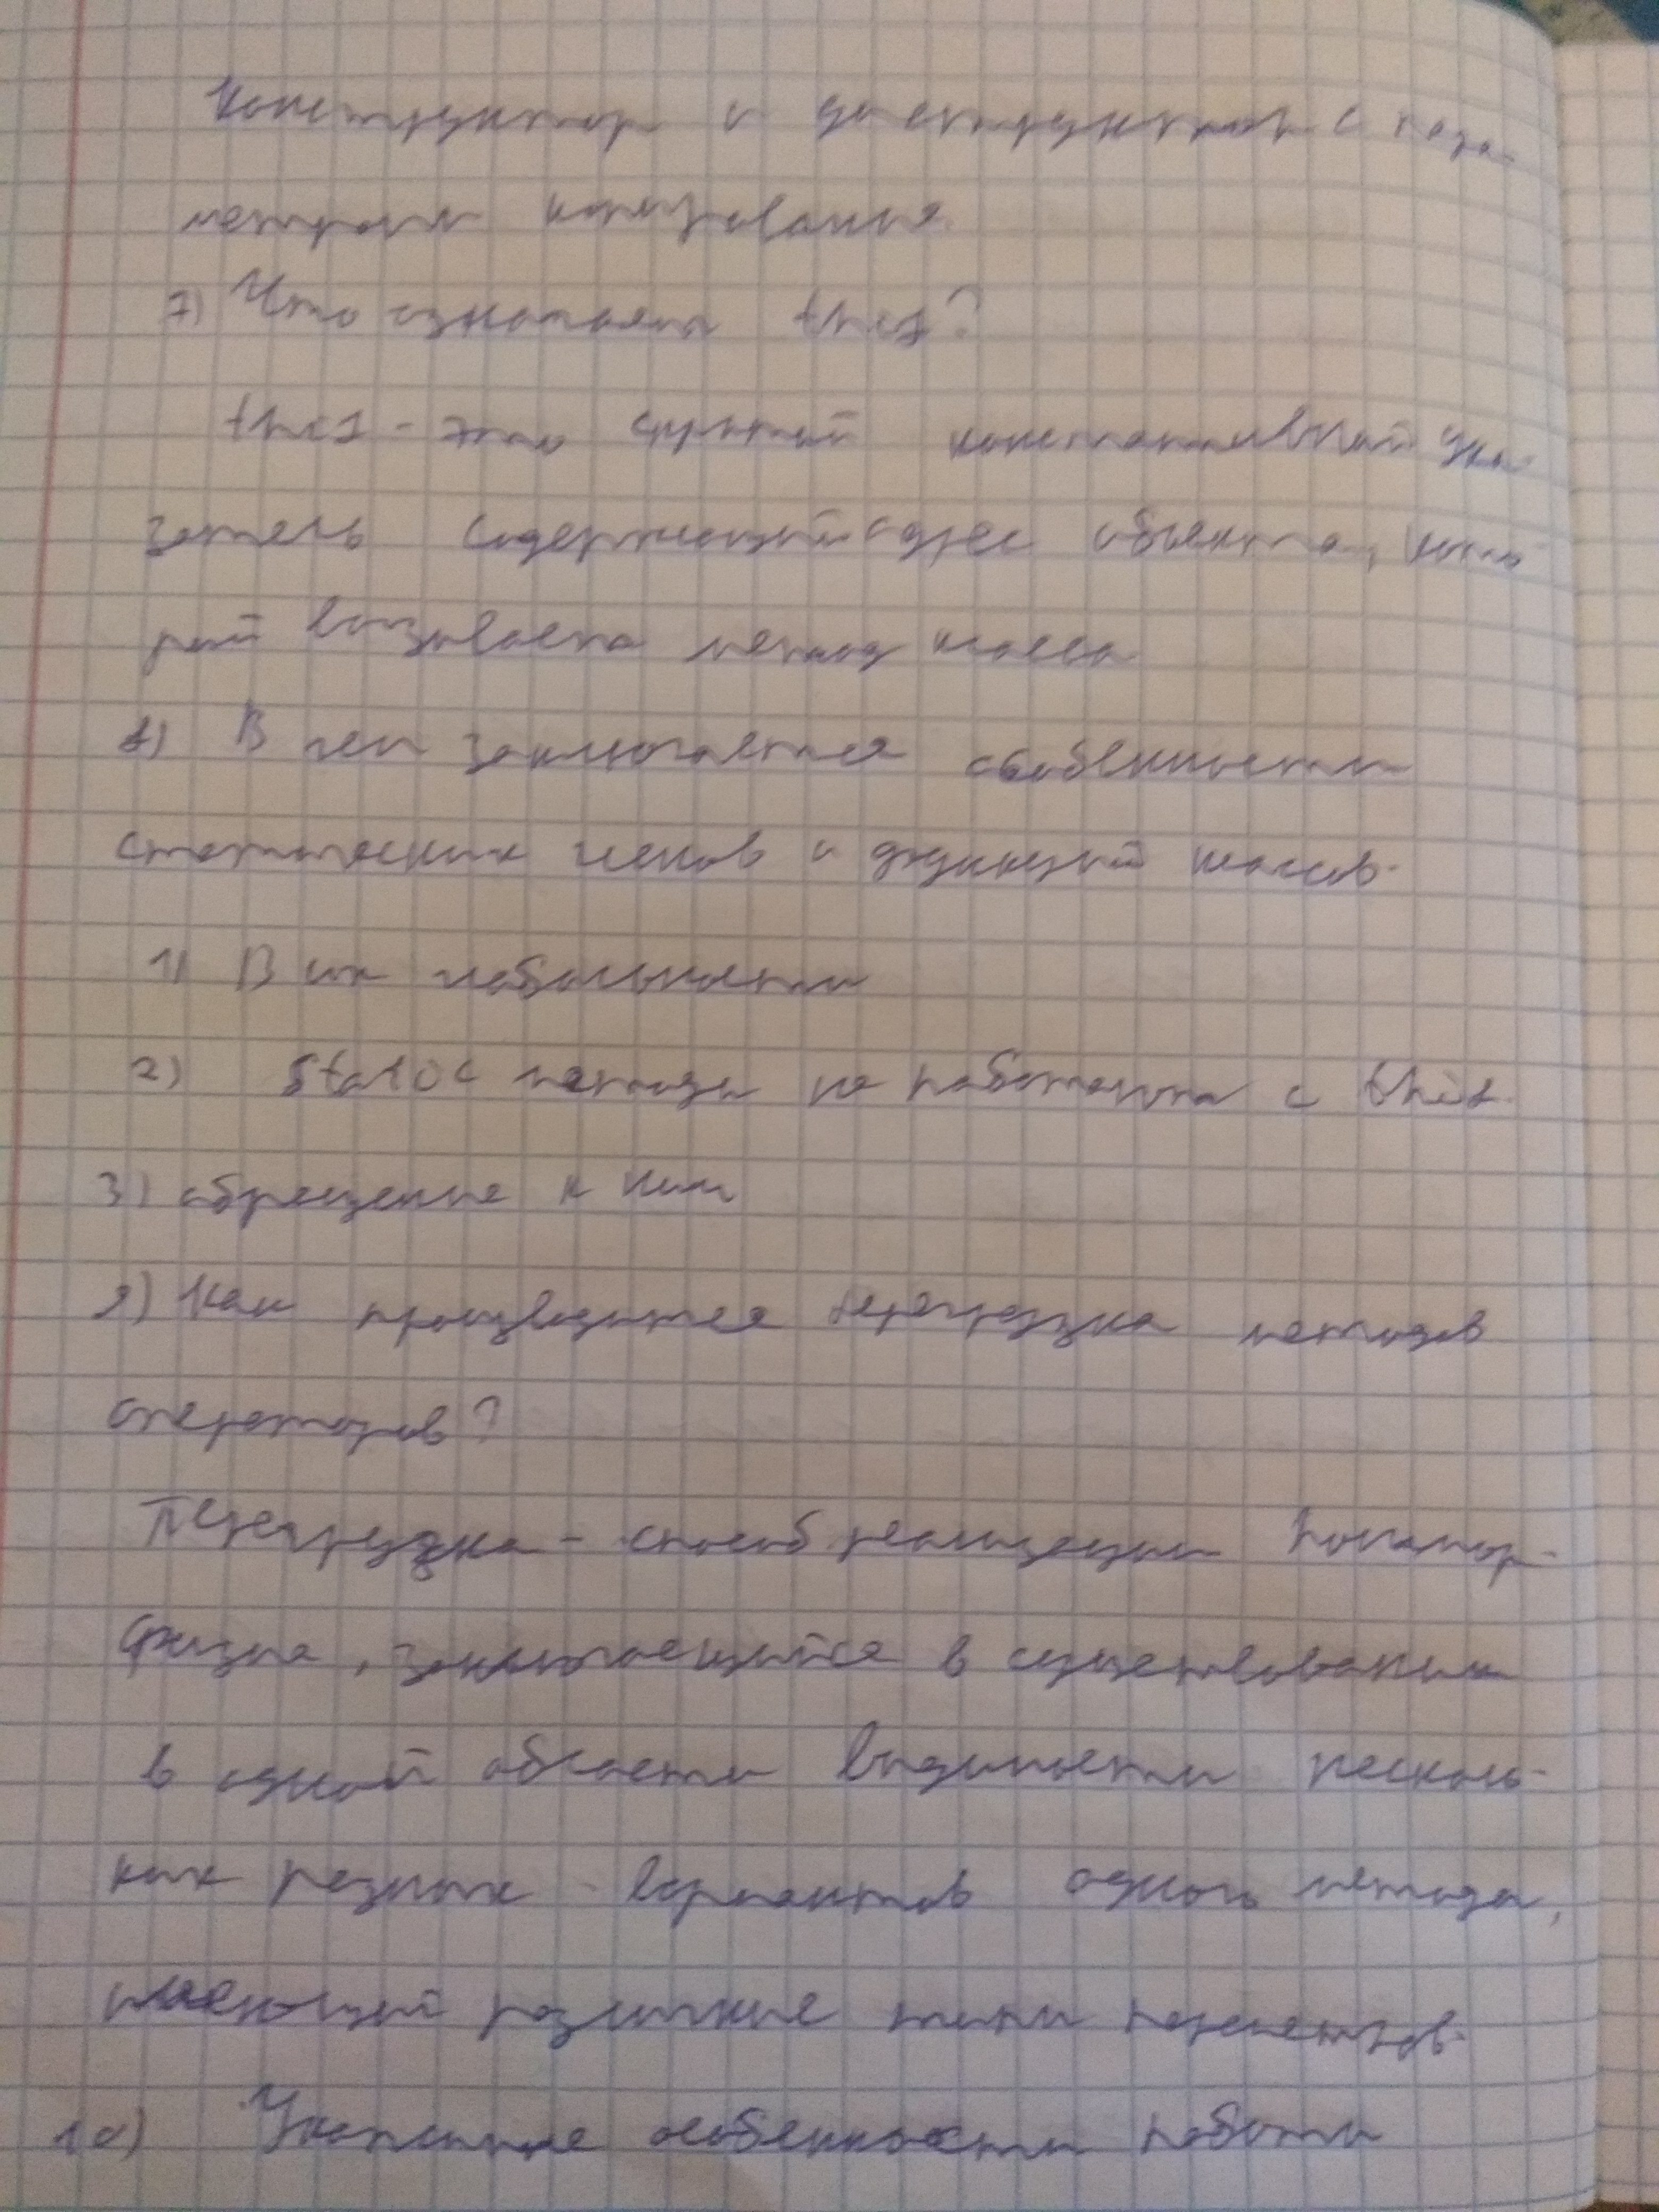 Конструктор и деструктор с пара-
метрами копирования.
7) Что означает this?
this - это скрытый константный ука-
затель содержащий адрес объекта, кото-
рый вызывает метод класса
8) В чем заключается особенности
статических членов и функций классов.
1) В их глобальности
2) static методы не работают с this.
3) обращение к ним
9) Как производится перегрузка методов
операторов?
Перегрузка - способ реализации полимор-
физма, заключающийся в существовании
в одной области видимости несколь-
ких разных вариантов одного метода,
имеющий различные типы параметров.
10) особенности работы